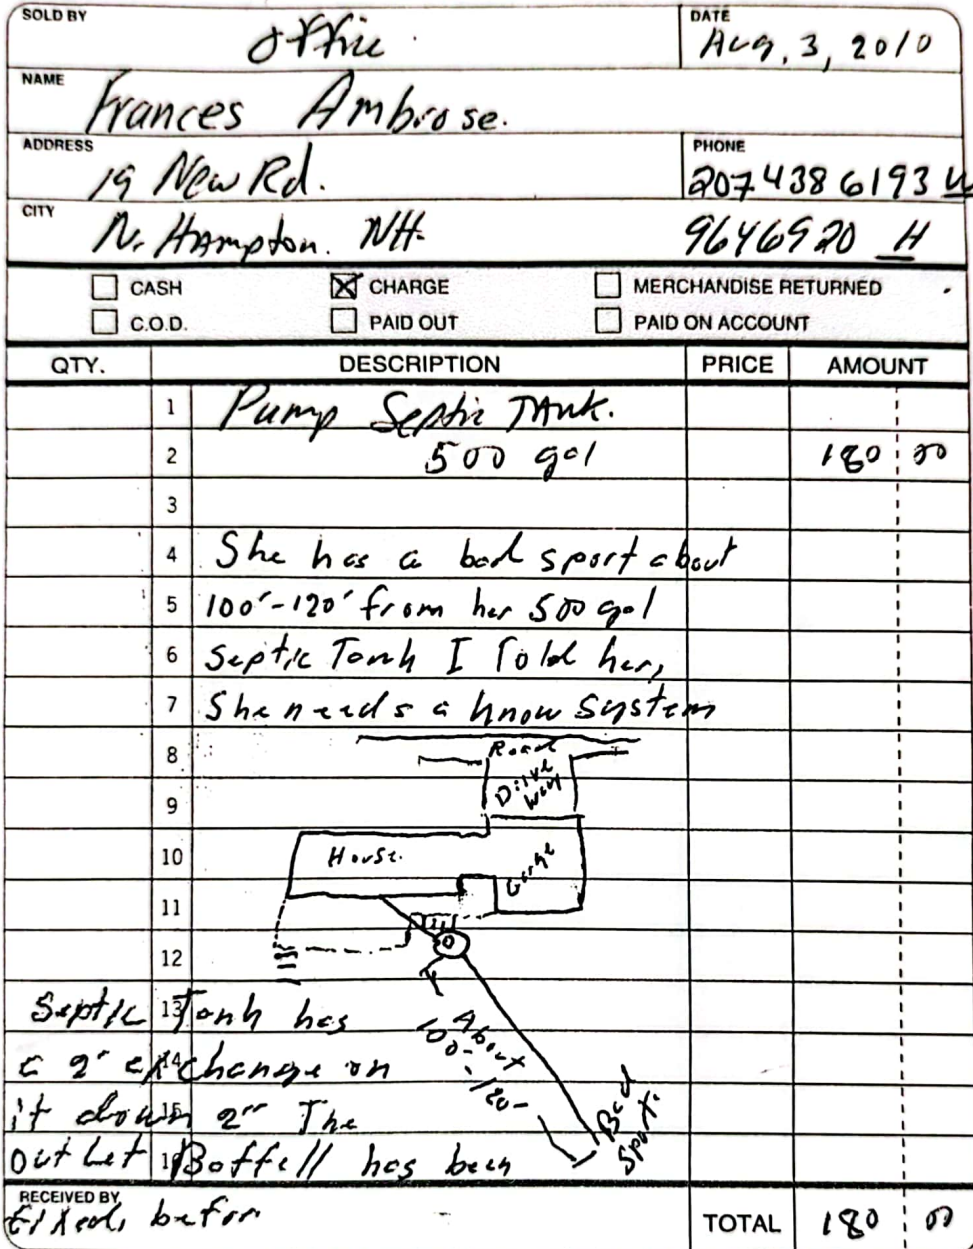 SOLD BY office. DATE Aug, 3, 2010
NAME Frances Ambrose.
ADDRESS 19 New Rd. PHONE 207 438 6193 W
CITY N. Hampton. NH. 9646920 H
CASH CHARGE MERCHANDISE RETURNED
C.O.D. PAID OUT PAID ON ACCOUNT
QTY. DESCRIPTION PRICE AMOUNT
1 Pump Septic TAnk.
2 500 gal 180 00
3
4 She has a bad sport about
5 100'-120' from her 500 gal
6 Septic Tonh I Told her,
7 She needs a know System
8 Road
Drive
9 way
10 House. Garge
11
12
Septic 13 Tonh has
About
100-
-120-
a 2" ex 14 change on
it down 15 2" The
Bad
Sport.
out Let 16 Boffell has been
RECEIVED BY
fixed, befor
TOTAL 180 00